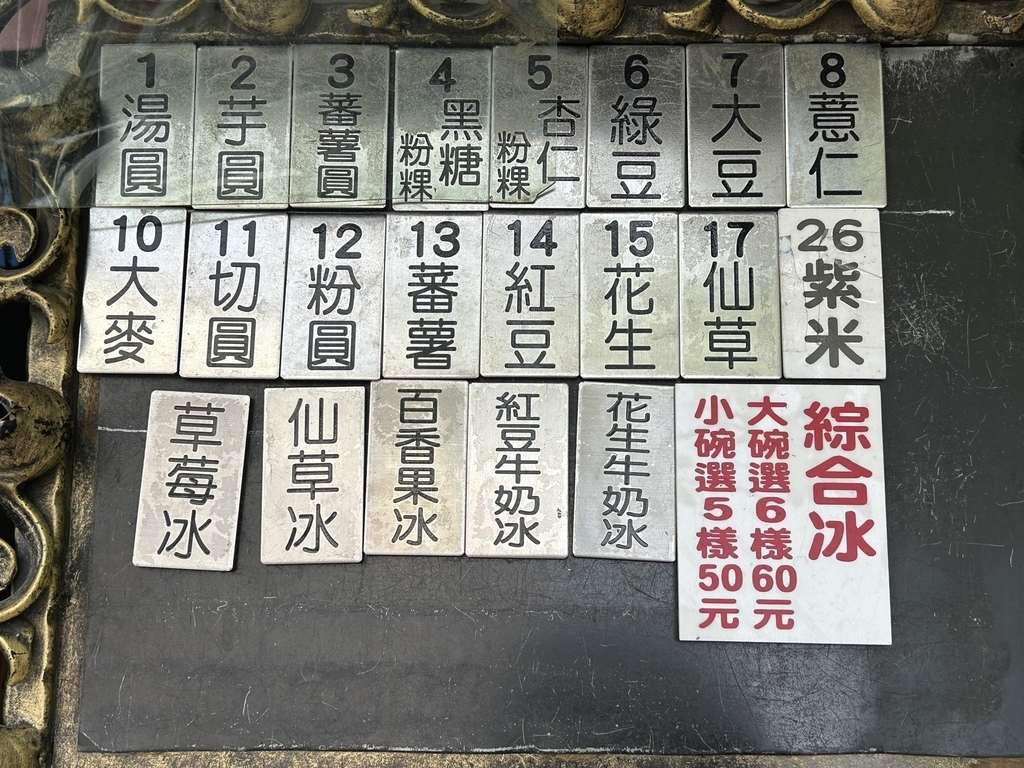 1 湯圓
2 芋圓
3 蕃薯圓
4 黑糖粉粿
5 杏仁粉粿
6 綠豆
7 大豆
8 薏仁
10 大麥
11 切圓
12 粉圓
13 蕃薯
14 紅豆
15 花生
17 仙草
26 紫米
草莓冰
仙草冰
百香果冰
紅豆牛奶冰
花生牛奶冰
綜合冰
大碗選6樣60元
小碗選5樣50元